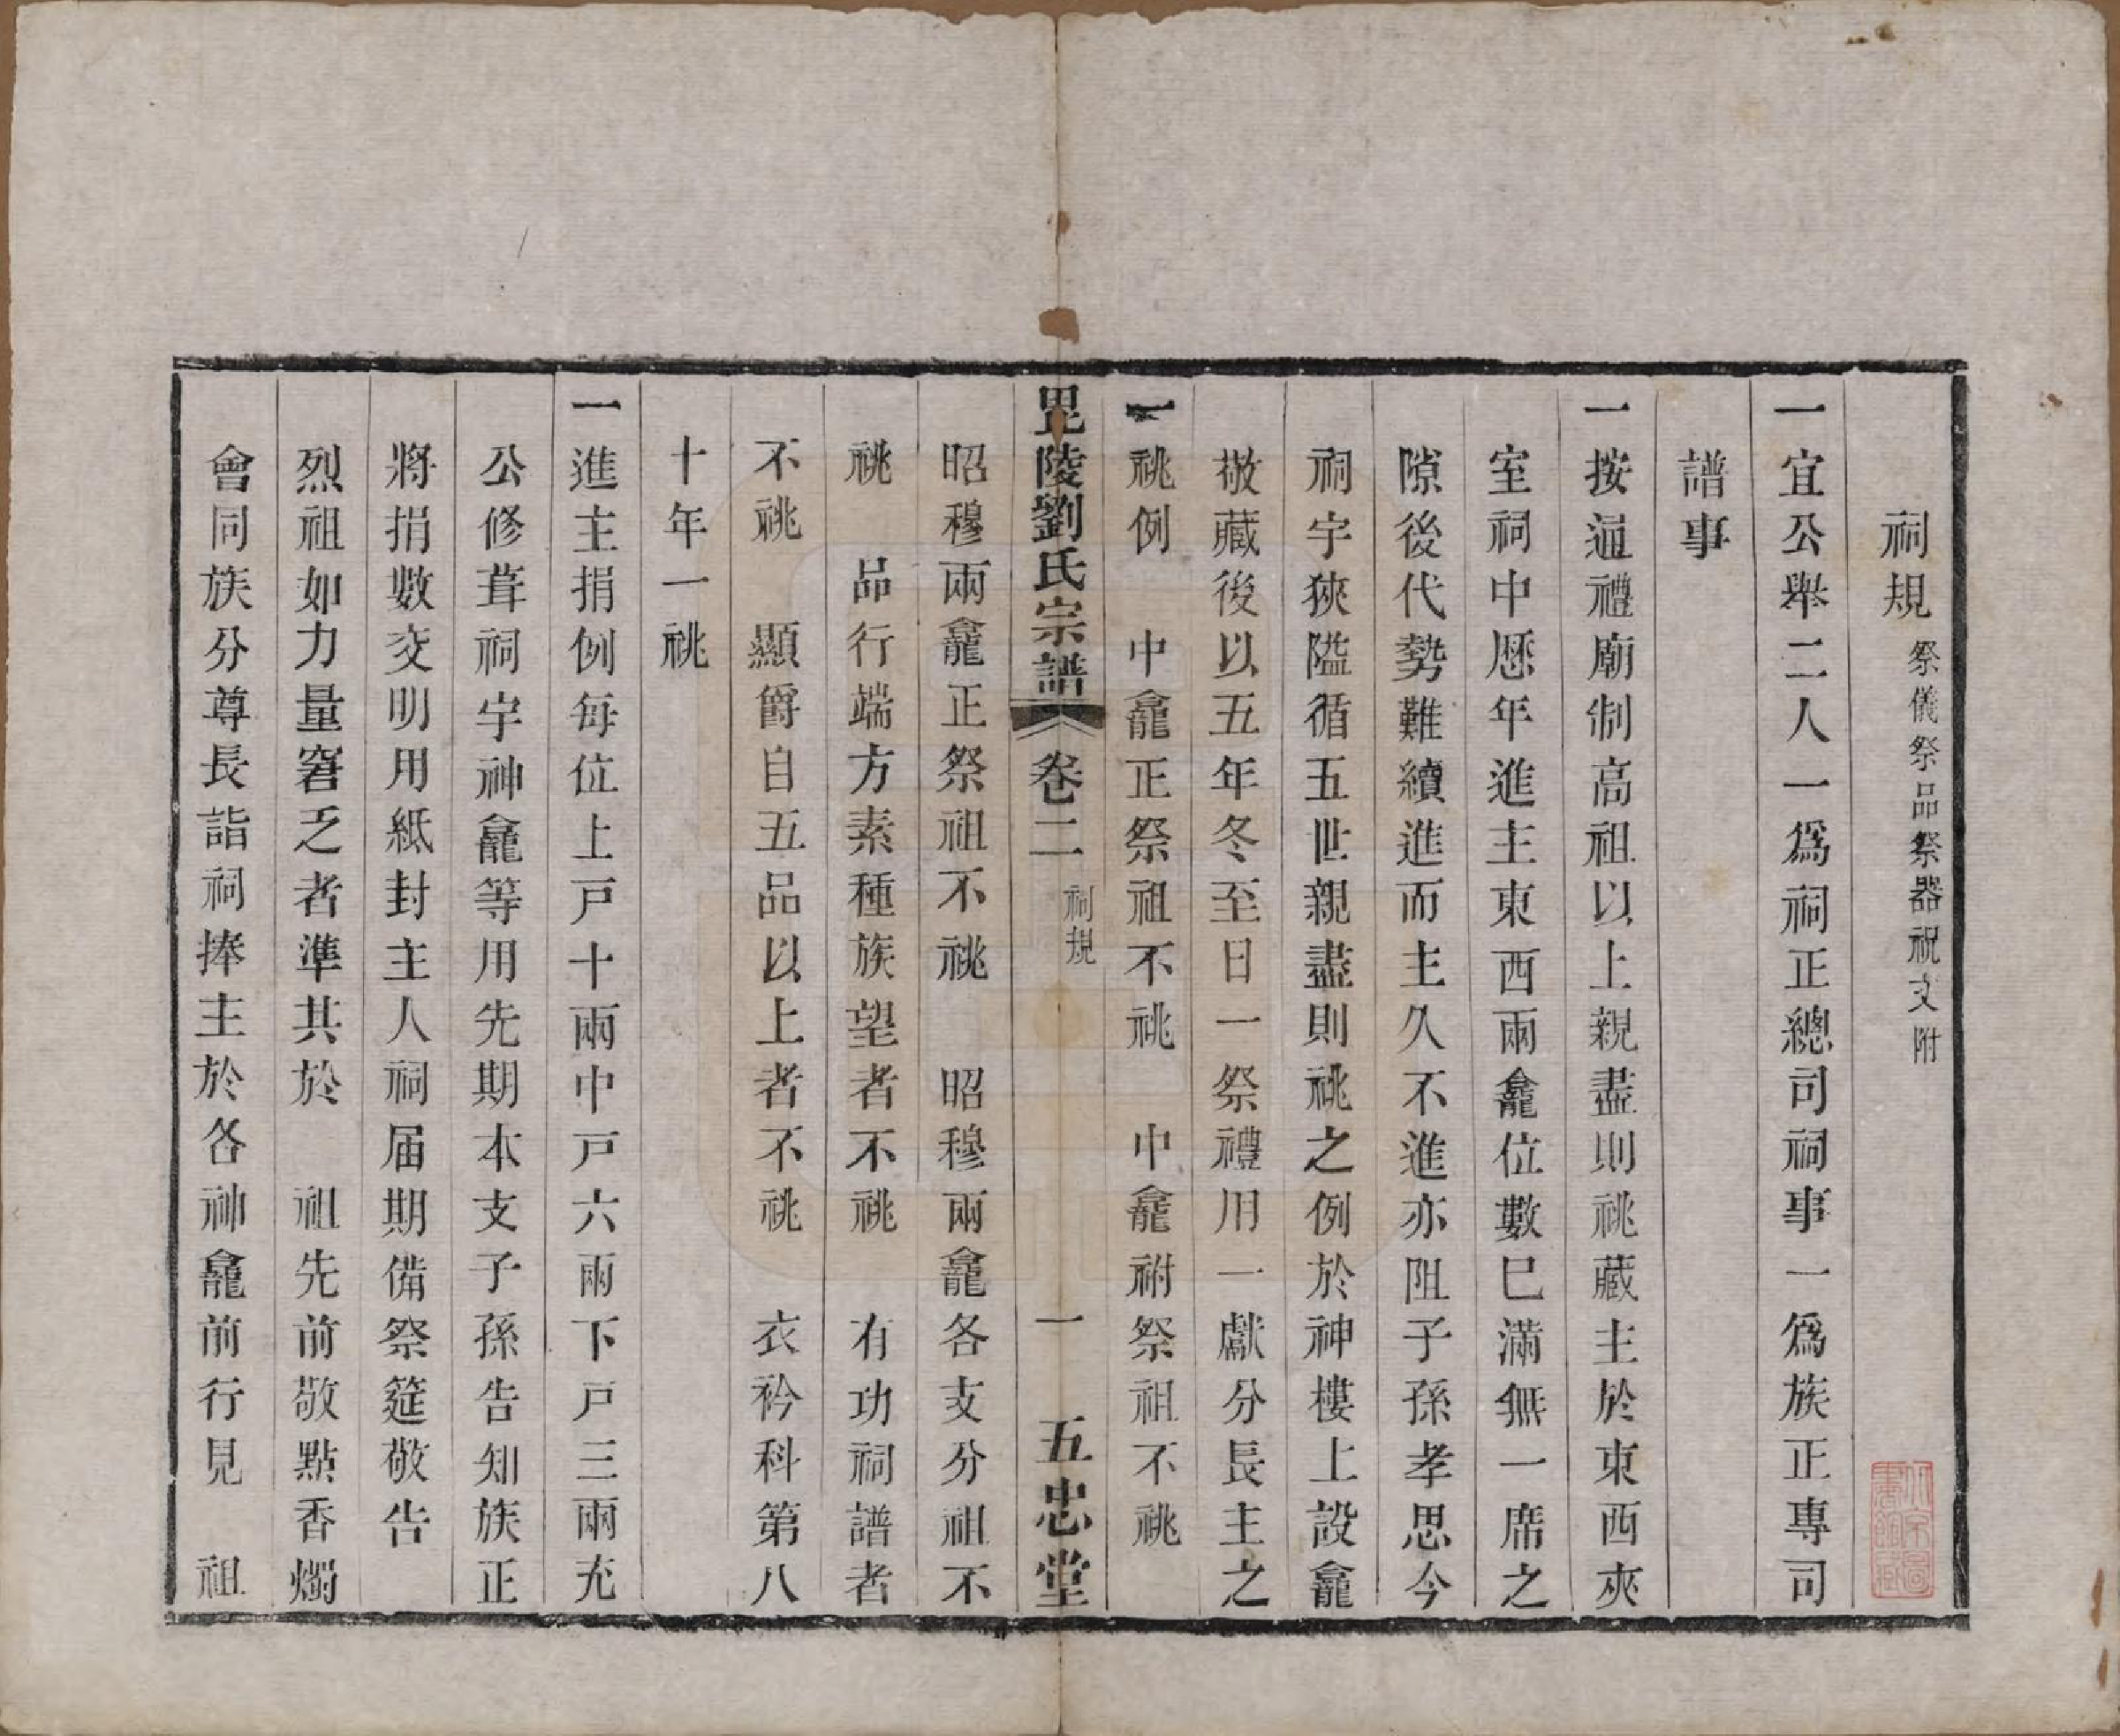 祠規 祭儀祭品祭器祝文附
一宜公舉二人一爲祠正總司祠事一爲族正專司
譜事
一按通禮廟制高祖以上親盡則祧藏主於東西夾
室祠中歷年進主東西兩龕位數巳滿無一席之
隙後代勢難續進而主久不進亦阻子孫孝思今
祠宇狹隘循五世親盡則祧之例於神樓上設龕
敬藏後以五年冬至日一祭禮用一獻分長主之
一祧例　中龕正祭祖不祧　中龕祔祭祖不祧
毘陵劉氏宗譜 卷二 祠規 一 五忠堂
昭穆兩龕正祭祖不祧　昭穆兩龕各支分祖不
祧　品行端方素種族望者不祧　有功祠譜者
不祧　顯爵自五品以上者不祧　衣衿科第八
十年一祧
一進主捐例每位上戸十兩中戸六兩下戸三兩充
公修葺祠宇神龕等用先期本支子孫告知族正
將捐數交明用紙封主人祠届期備祭筵敬告
烈祖如力量窘乏者準其於　祖先前敬點香燭
會同族分尊長詣祠捧主於各神龕前行見　祖